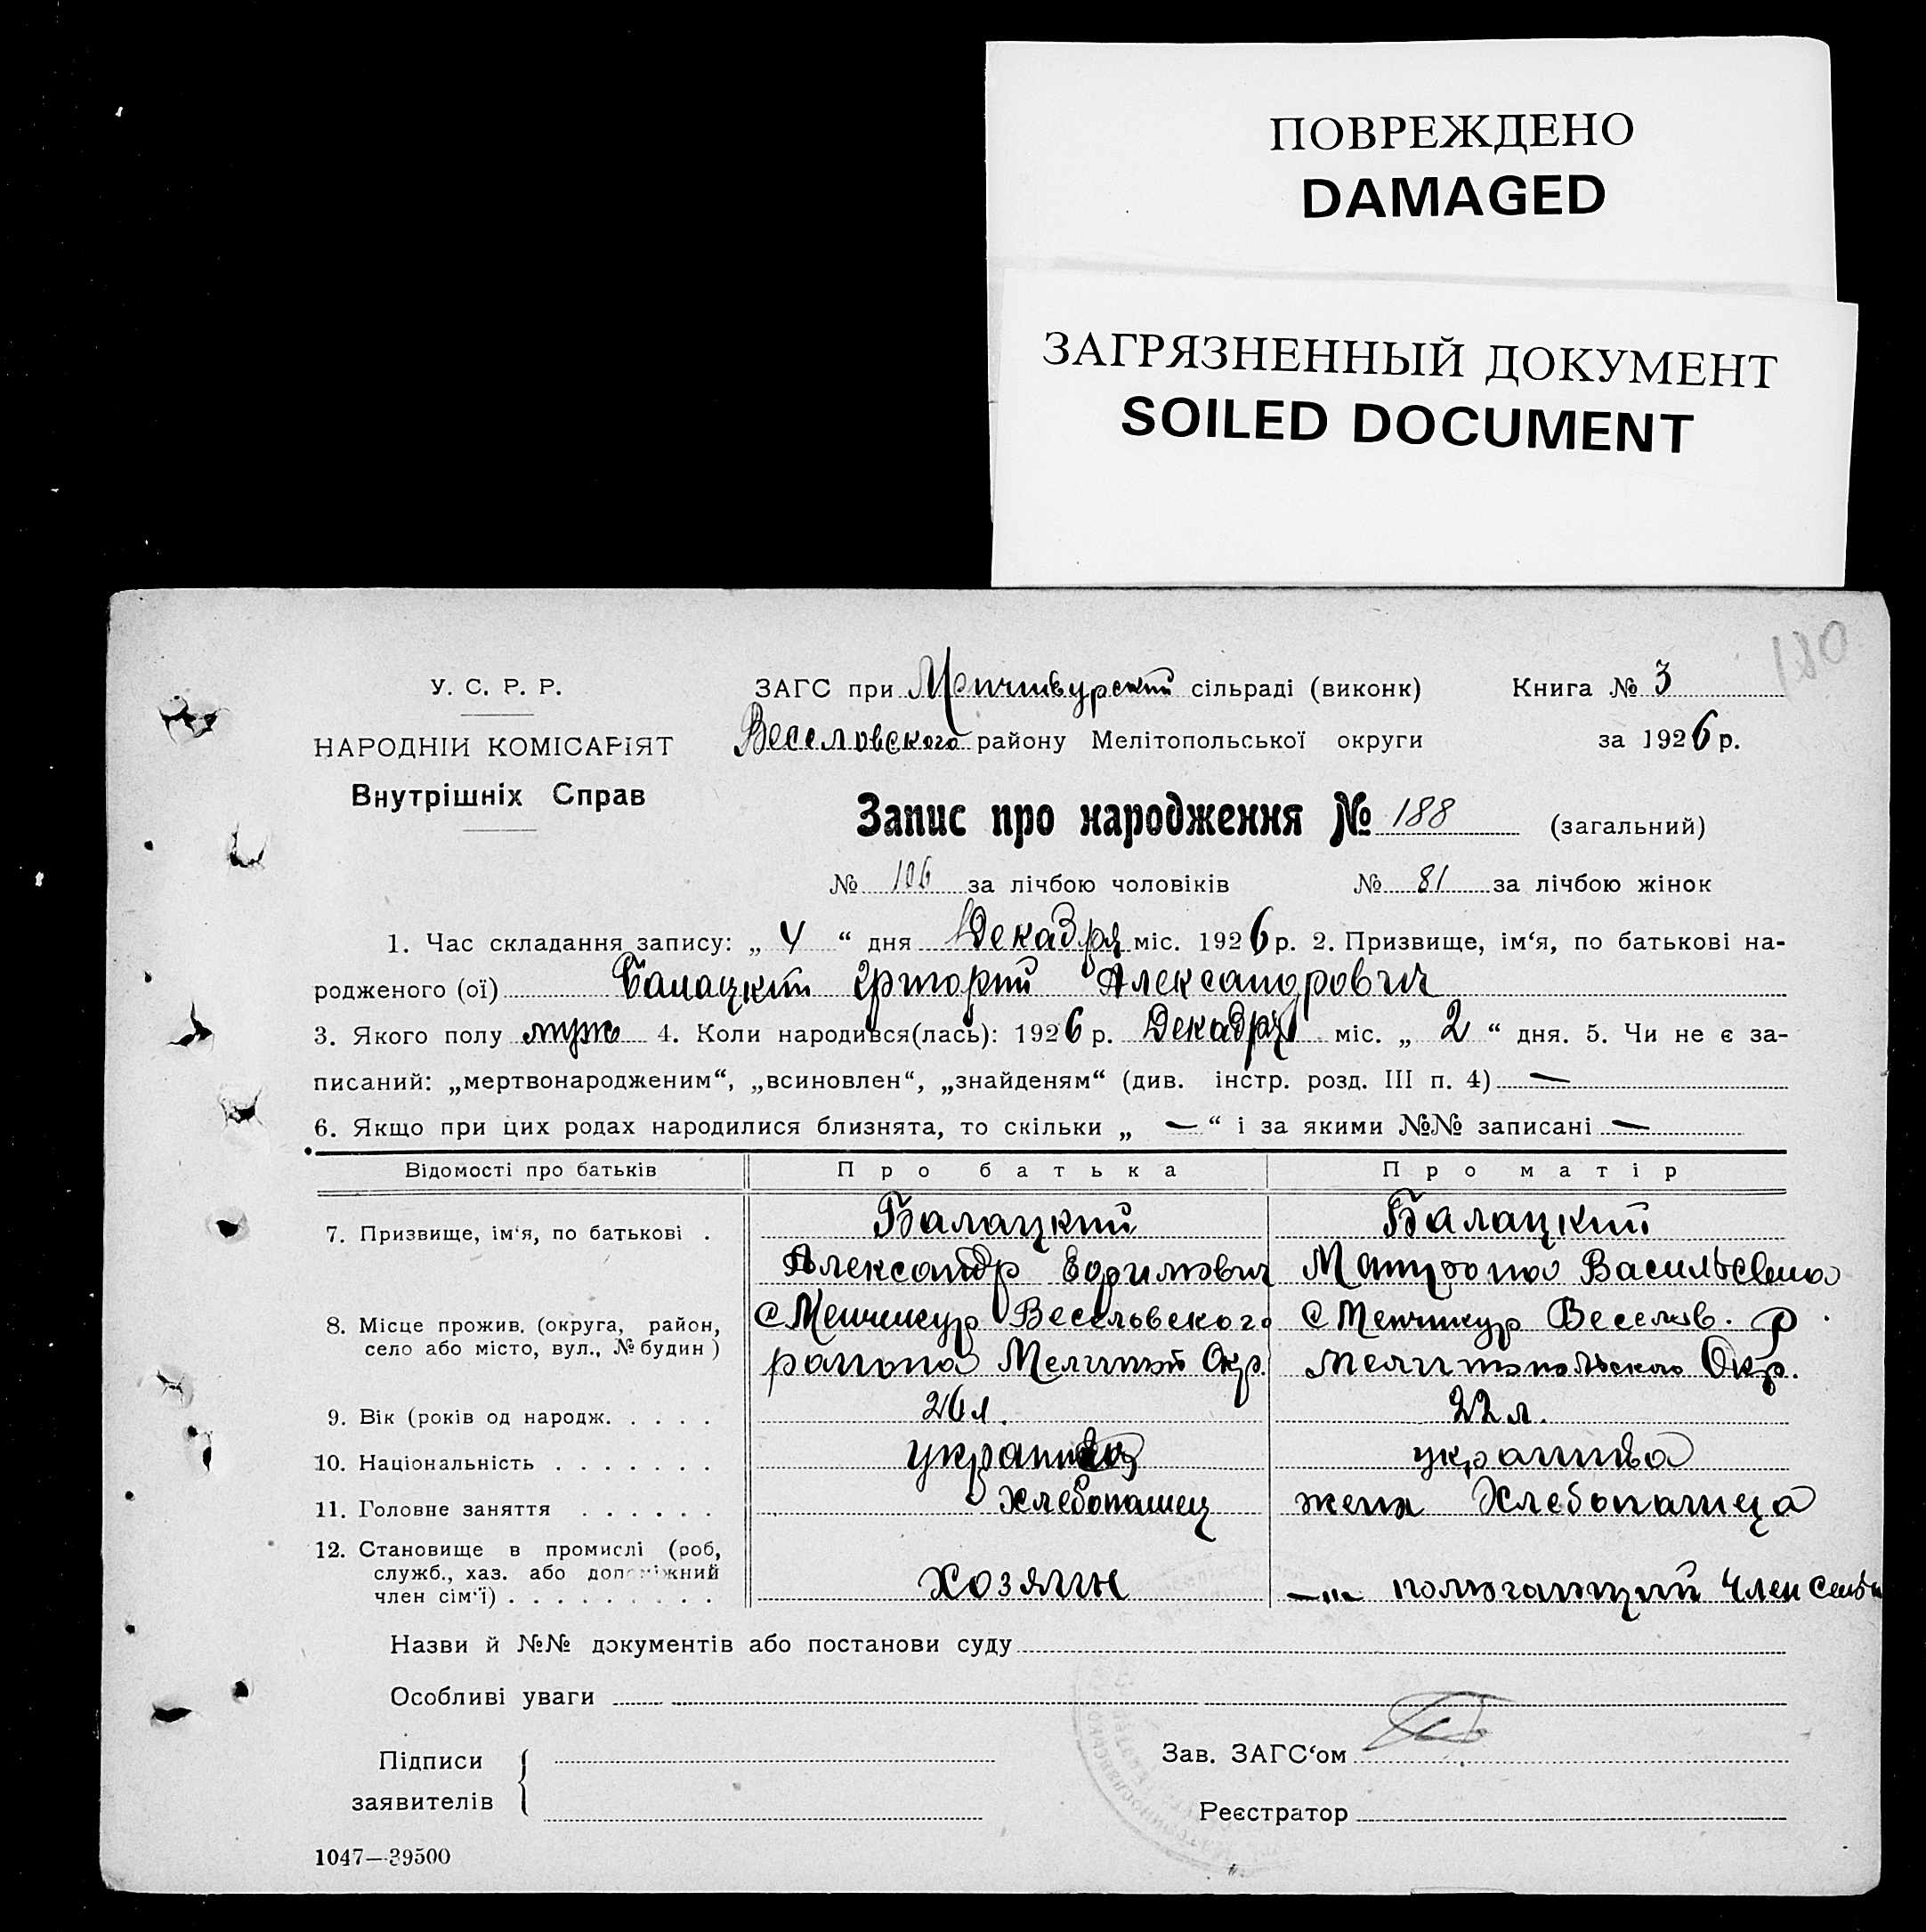 ПОВРЕЖДЕНО
DAMAGED
ЗАГРЯЗНЕННЫЙ ДОКУМЕНТ
SOILED DOCUMENT
180
У. С. Р. Р.
НАРОДНІЙ КОМІСАРІЯТ
Внутрішніх Справ
ЗАГС при Менчикурский сільраді (виконк) Книга № 3
Веселовского району Мелітопольської округи за 1926 р.
Запис про народження № 188 (загальний)
№ 106 за лічбою чоловіків № 81 за лічбою жінок
1. Час складання запису: „ 4 “ дня Декабря міс. 1926 р. 2. Призвище, ім‘я, по батькові на-
родженого (ої) Балацкий Григорий Александрович
3. Якого полу муж 4. Коли народився(лась): 1926 р. Декабря міс. „ 2 “ дня. 5. Чи не є за-
писаний: „мертвонародженим“, „всиновлен“, „знайденям“ (див. інстр. розд. III п. 4) —
6. Якщо при цих родах народилися близнята, то скільки „ — “ і за якими №№ записані —
Відомості про батьків Про батька Про матір
7. Призвище, ім‘я, по батькові . Балацкий Балацкий
Александр Васильевна
8. Місце прожив. (округа, район, село або місто, вул., № будин) с Менчикур Веселовского с Менчикур Веселов. Р.
района Мелитоп Окр. Мелитопольского Окр.
9. Вік (років од народж. . . . . 26 л. 22 л.
10. Національність . . . . . . . украинка
11. Головне заняття . . . . . . Хлебопашец жена Хлебопашеца
12. Становище в промислі (роб, служб., хаз. або допоміжний член сім‘ї) . . . . . . . . . хозяин —"— помогающий член семьи
Назви й №№ документів або постанови суду
Особливі уваги
Підписи заявителів
Зав. ЗАГС‘ом
Реєстратор
1047—39500